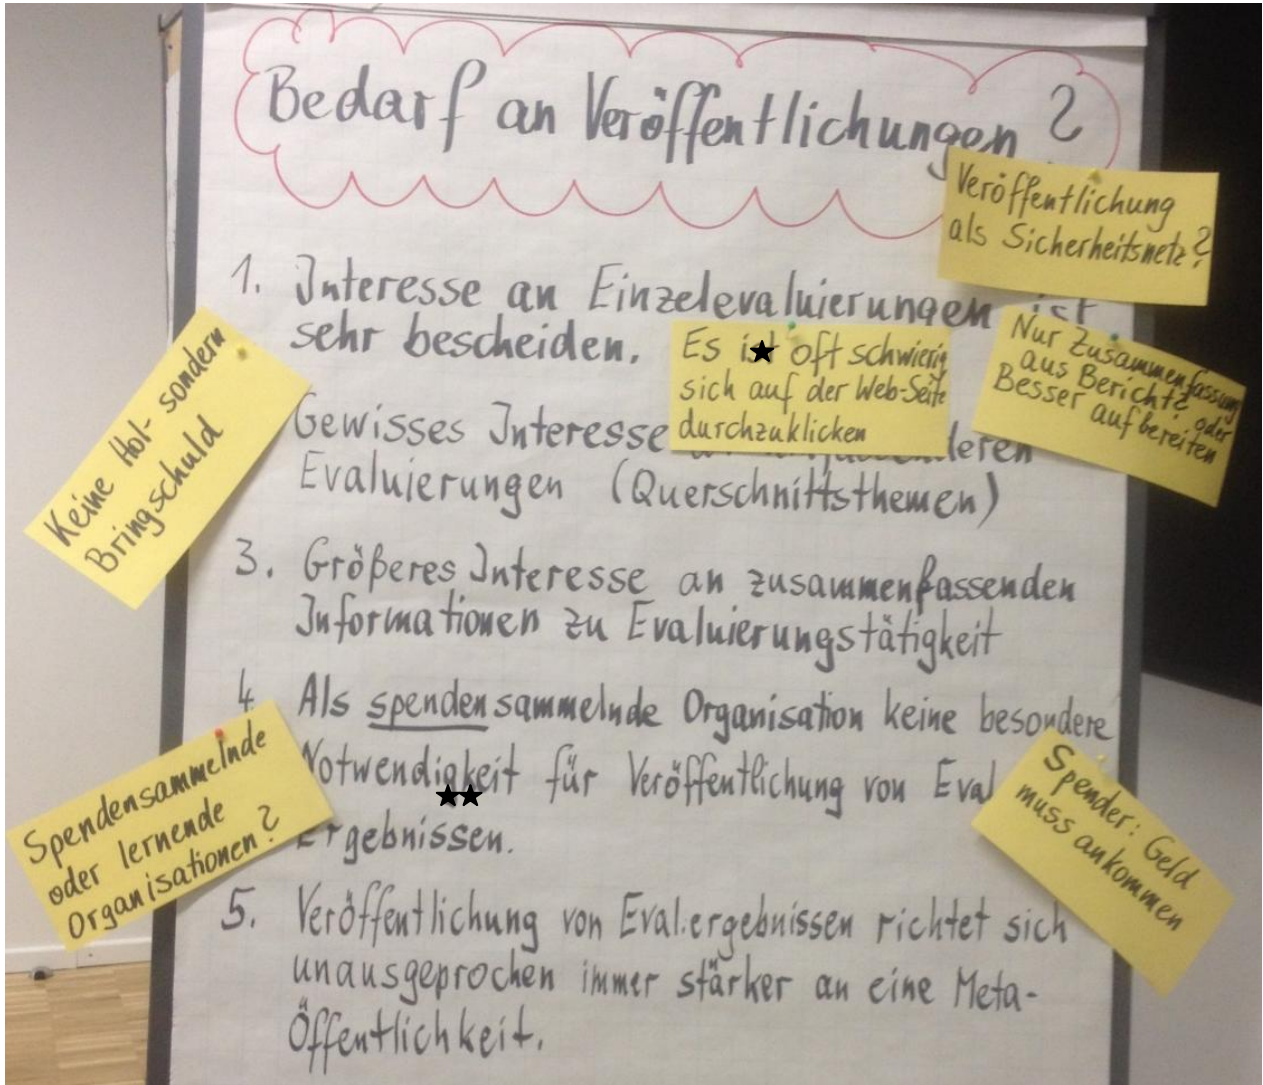 Bedarf an Veröffentlichungen ?
Veröffentlichung
als Sicherheitsnetz?
1. Interesse an Einzelevaluierungen ist
sehr bescheiden.
Es ist oft schwierig
sich auf der Web-Seite
durchzuklicken
Nur Zusammenfassung
aus Bericht? oder
Besser aufbereiten
Keine Hol- sondern
Bringschuld
Gewisses Interesse
Evaluierungen (Querschnittsthemen)
3. Größeres Interesse an zusammenfassenden
Informationen zu Evaluierungstätigkeit
4. Als spendensammelnde Organisation keine besondere
Notwendigkeit für Veröffentlichung von Eval
Ergebnissen.
Spendensammelnde
oder lernende
Organisationen?
Spender: Geld
muss ankommen
5. Veröffentlichung von Eval.ergebnissen richtet sich
unausgeprochen immer stärker an eine Meta-
Öffentlichkeit.